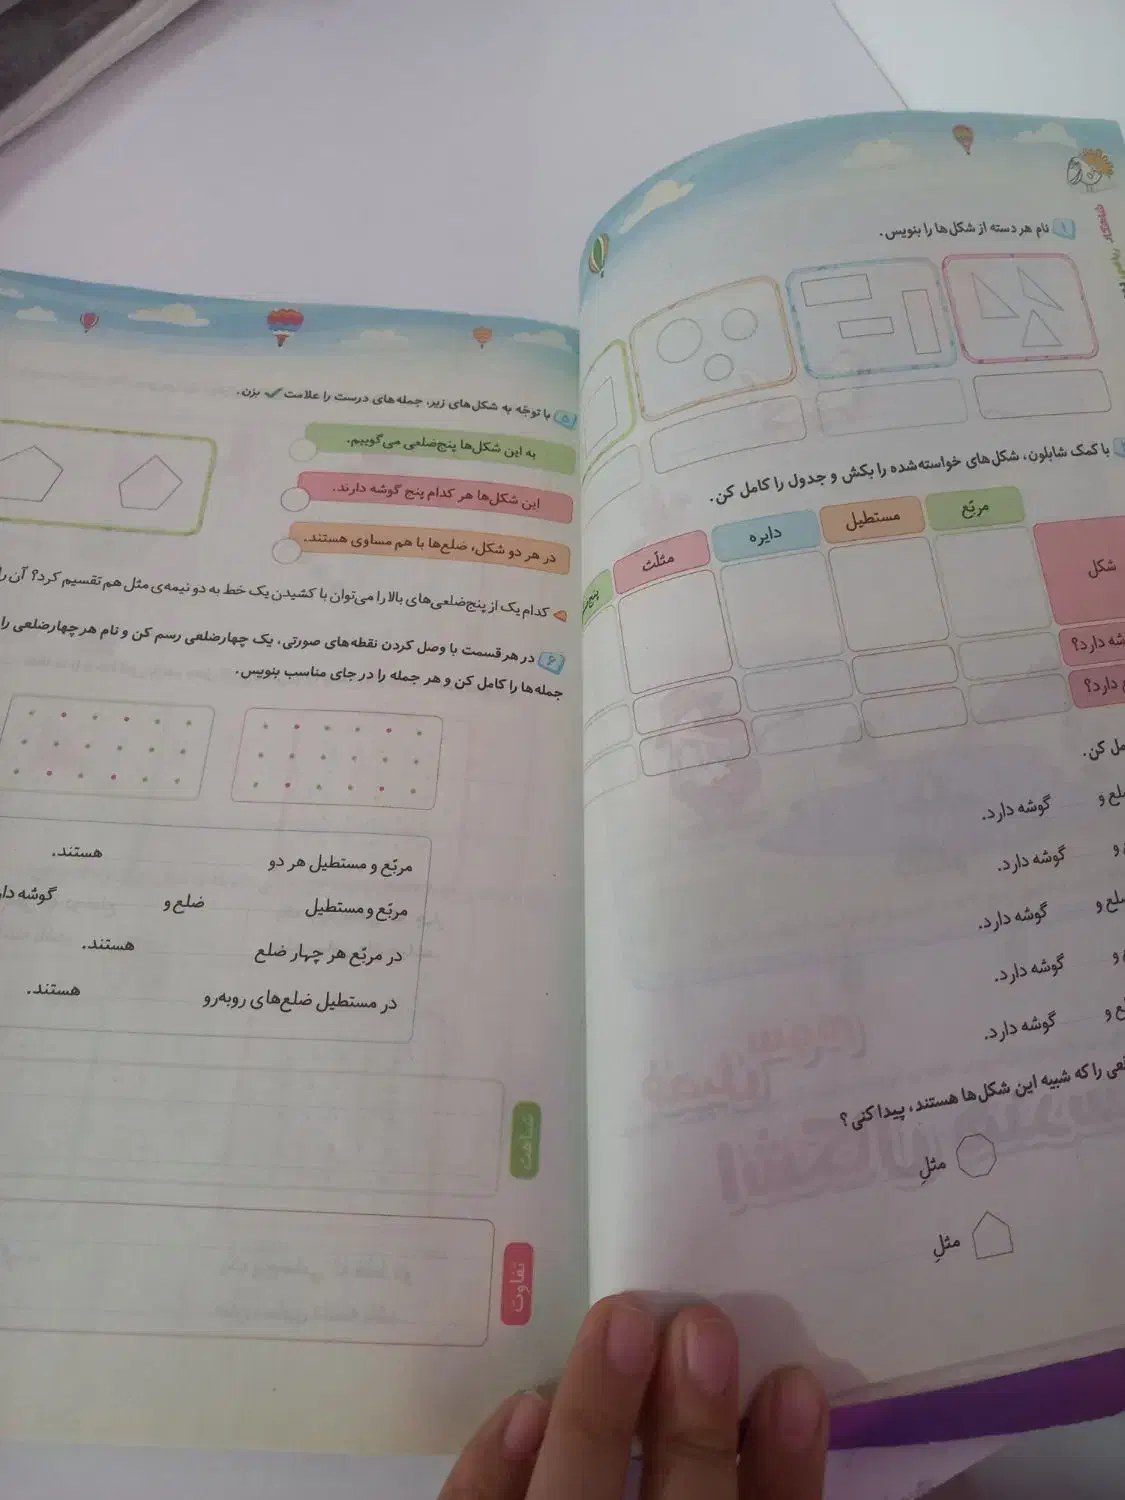 شاهکار
ریاضی
۱ نام هر دسته از شکل‌ها را بنویس.
با کمک شابلون، شکل‌های خواسته‌شده را بکش و جدول را کامل کن.
شکل مربّع مستطیل دایره مثلّث
دارد؟
دارد؟
کن.
ضلع و گوشه دارد.
و گوشه دارد.
ضلع و گوشه دارد.
و گوشه دارد.
و گوشه دارد.
را که شبیه این شکل‌ها هستند، پیدا کنی؟
مثلِ
مثلِ
۵ با توجّه به شکل‌های زیر، جمله‌های درست را علامت ✓ بزن.
به این شکل‌ها پنج‌ضلعی می‌گوییم.
این شکل‌ها هر کدام پنج گوشه دارند.
در هر دو شکل، ضلع‌ها با هم مساوی هستند.
کدام یک از پنج‌ضلعی‌های بالا را می‌توان با کشیدن یک خط به دو نیمه‌ی مثل هم تقسیم کرد؟ آن را
۶ در هر قسمت با وصل کردن نقطه‌های صورتی، یک چهارضلعی رسم کن و نام هر چهارضلعی را
جمله‌ها را کامل کن و هر جمله را در جای مناسب بنویس.
مربّع و مستطیل هر دو هستند.
مربّع و مستطیل ضلع و گوشه
در مربّع هر چهار ضلع هستند.
در مستطیل ضلع‌های روبه‌رو هستند.
شباهت
تفاوت